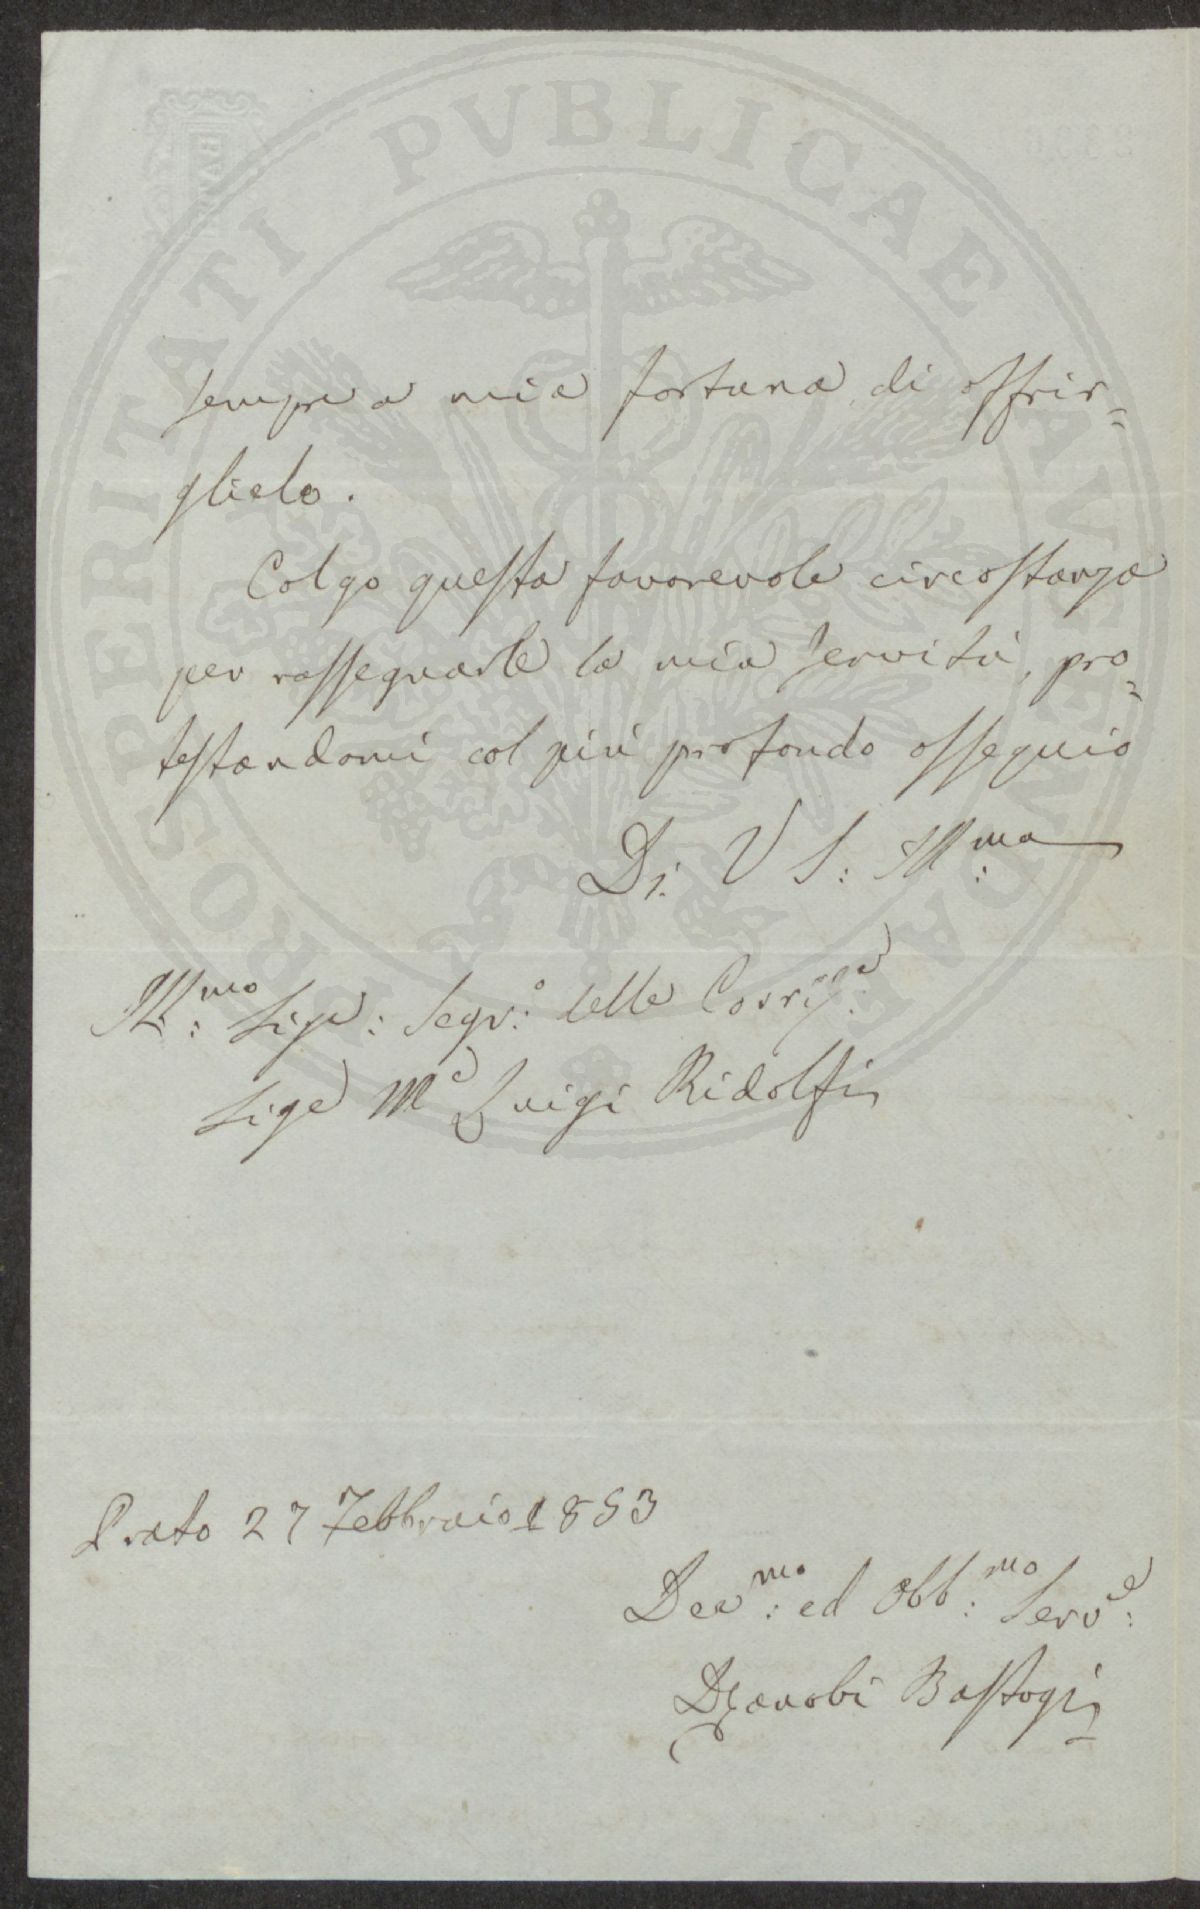 PROSPERITATI PVBLICAE AVGENDAE
sempre a mia fortuna di offrir=
glielo.
Colgo questa favorevole circostanza
per rassegnarle la mia servitù, pro=
testandomi col più profondo ossequio
Di V S: Ill:ma
Ill:mo Sige: Segr:o delle Corrisp:e
Sige Mse Luigi Ridolfi
Prato 27 Febbraio 1853
Dev:mo ed Obb:mo Serv:e
Dzanobi Bastogi